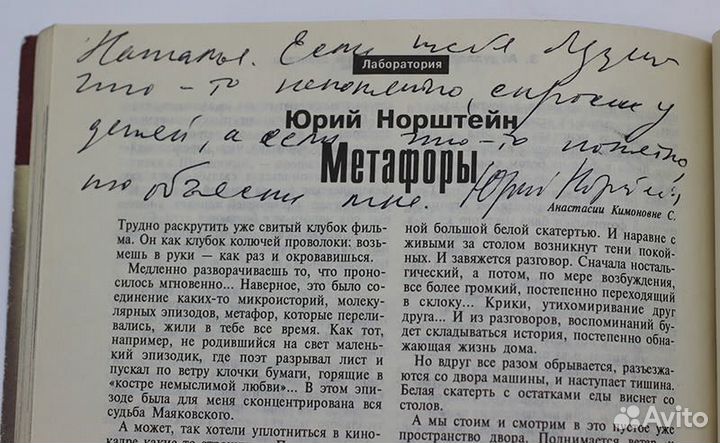 Наталья. Если тебе будет
Лаборатория
что-то непонятно, спроси у
Юрий Норштейн
детей, а если что-то понятно,
Метафоры
то объясни мне. Юрий Норштейн
Анастасии Кимоновне С.
Трудно раскрутить уже свитый клубок филь-
ма. Он как клубок колючей проволоки: возь-
мешь в руки — как раз и окровавишься.
Медленно разворачиваешь то, что проно-
силось мгновенно... Наверное, это было со-
единение каких-то микроисторий, молеку-
лярных эпизодов, метафор, которые перели-
вались, жили в тебе все время. Как тот,
например, не родившийся на свет малень-
кий эпизодик, где поэт разрывал лист и
пускал по ветру клочки бумаги, горящие в
«костре немыслимой любви»... В этом эпи-
зоде была для меня сконцентрирована вся
судьба Маяковского.
А может, так хотели уплотниться в кино-
ной большой белой скатертью. И наравне с
живыми за столом возникнут тени покой-
ных. И завяжется разговор. Сначала носталь-
гический, а потом, по мере возбуждения,
все более громкий, постепенно переходящий
в склоку... Крики, утихомиривание друг
друга... И из разговоров, воспоминаний бу-
дет складываться история, постепенно обна-
жающая жизнь дома.
Но вдруг все разом обрывается, разъезжа-
ются со двора машины, и наступает тишина.
Белая скатерть с остатками еды виснет со
столов.
А мы стоим и смотрим в это пустое уже
пространство двора. Поднимается ветер и
Avito